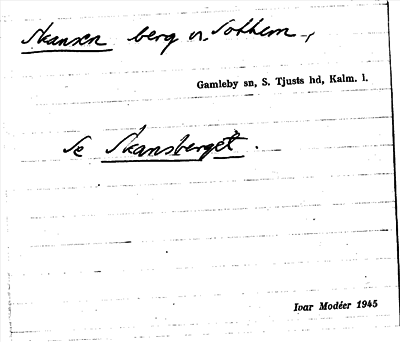 Skansen berg n. Tothem,
Gamleby sn, S. Tjusts hd, Kalm. l.
Se Skansberget.
Ivar Modéer 1945